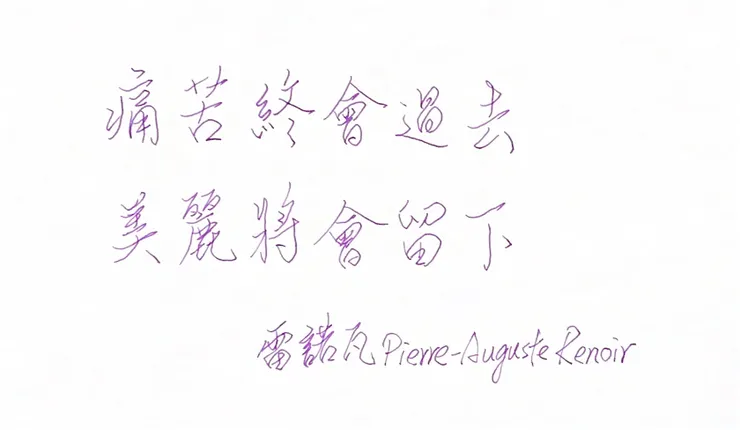 痛苦終會過去
美麗將會留下
雷諾瓦 Pierre-Auguste Renoir